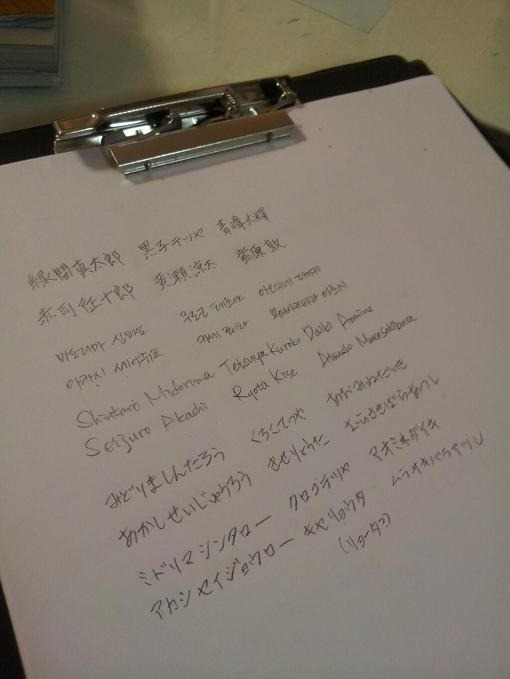 緑間真太郎 黒子テツヤ 青峰大輝
赤司征十郎 黄瀬涼太 紫原敦
미도리마 신타로 쿠로코 테츠야 아오미네 다이키
아카시 세이쥬로 키세 료타 무라사키바라 아츠시
Shintaro Midorima Tetsuya Kuroko Daiki Aomine
Seijuro Akashi Ryota Kise Atsushi Murasakibara
みどりましんたろう くろこてつや あおみねだいき
あかしせいじゅうろう きせりょうた むらさきばらあつし
ミドリマ シンタロー クロコテツヤ アオミネダイキ
アカシ セイジョウロー キセリョウタ
(リョータ?)